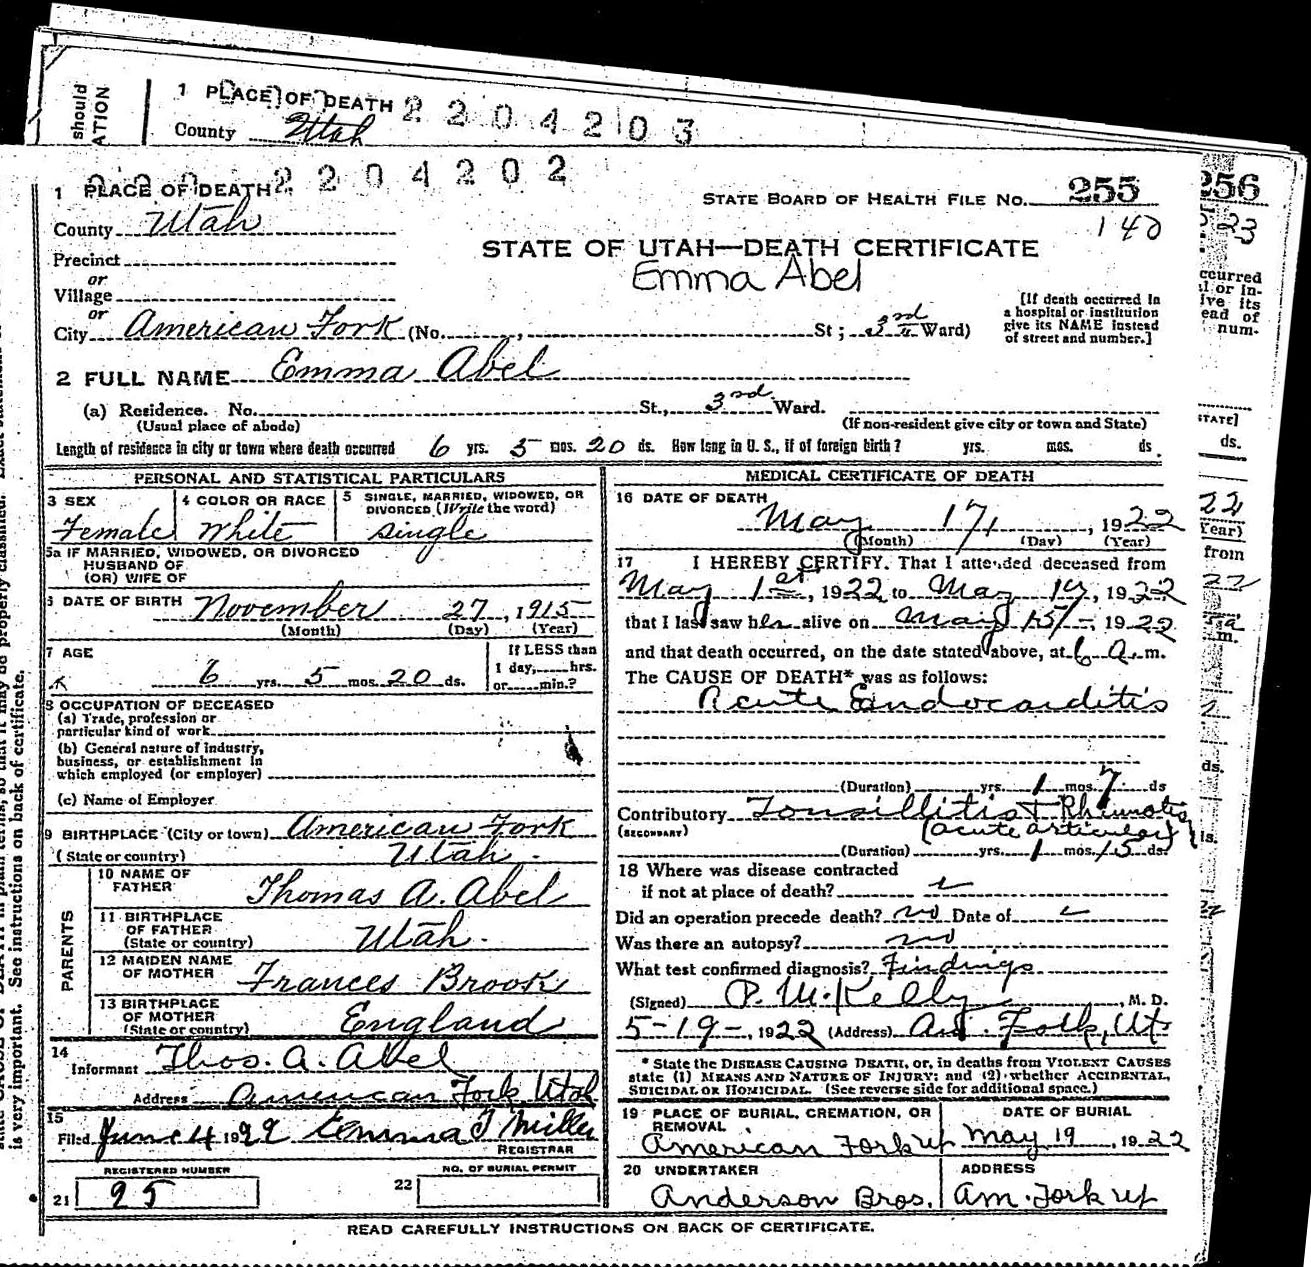 should
ATION
1 PLACE OF DEATH 2204203
County Utah
1 PLACE OF DEATH 2204202
STATE BOARD OF HEALTH FILE No. 255
256
County Utah
140
23
STATE OF UTAH—DEATH CERTIFICATE
Emma Abel
Precinct
or
Village
or
City American Fork (No. , St ; 3rd Ward)
[If death occurred in
a hospital or institution
give its NAME instead
of street and number.]
2 FULL NAME Emma Abel
(a) Residence. No. St., 3rd Ward.
(Usual place of abode)
(If non-resident give city or town and State)
Length of residence in city or town where death occurred 6 yrs. 5 mos. 20 ds. How long in U. S., if of foreign birth? yrs. mos. ds.
PERSONAL AND STATISTICAL PARTICULARS
3 SEX
Female
4 COLOR OR RACE
White
5 SINGLE, MARRIED, WIDOWED, OR
DIVORCED (Write the word)
single
5a IF MARRIED, WIDOWED, OR DIVORCED
HUSBAND OF
(OR) WIFE OF
6 DATE OF BIRTH November 27, 1915
(Month) (Day) (Year)
7 AGE
6 yrs. 5 mos. 20 ds.
If LESS than
1 day, hrs.
or min.?
8 OCCUPATION OF DECEASED
(a) Trade, profession or
particular kind of work
(b) General nature of industry,
business, or establishment in
which employed (or employer)
(c) Name of Employer
9 BIRTHPLACE (City or town) American Fork
(State or country) Utah.
PARENTS
10 NAME OF
FATHER Thomas A. Abel
11 BIRTHPLACE
OF FATHER
(State or country) Utah.
12 MAIDEN NAME
OF MOTHER Frances Brook
13 BIRTHPLACE
OF MOTHER
(State or country) England
14
Informant Thos. A. Abel
Address American Fork Utah
15
Filed June 4 1922 Emma T Miller
REGISTRAR
REGISTERED NUMBER
21 95
NO. OF BURIAL PERMIT
22
MEDICAL CERTIFICATE OF DEATH
16 DATE OF DEATH
May 17, 1922
(Month) (Day) (Year)
17 I HEREBY CERTIFY. That I attended deceased from
May 1st, 1922 to May 17, 1922
that I last saw her alive on May 15/-, 1922
and that death occurred, on the date stated above, at 6 a.m.
The CAUSE OF DEATH* was as follows:
Acute Endocarditis
(Duration) yrs. 1 mos. 7 ds
Contributory Tonsillitis +
(SECONDARY) (acute articular)
(Duration) yrs. 1 mos. 15 ds.
18 Where was disease contracted
if not at place of death?
Did an operation precede death? no Date of
Was there an autopsy? no
What test confirmed diagnosis? Findings
(Signed) P. M. Kelly, M. D.
5-19-, 1922 (Address) Am. Fork, Ut
* State the DISEASE CAUSING DEATH, or, in deaths from VIOLENT CAUSES
state (1) MEANS AND NATURE OF INJURY; and (2) whether ACCIDENTAL,
SUICIDAL OR HOMICIDAL. (See reverse side for additional space.)
19 PLACE OF BURIAL, CREMATION, OR
REMOVAL
American Fork Ut
DATE OF BURIAL
May 19, 1922
20 UNDERTAKER
Anderson Bros.
ADDRESS
Am. Fork Ut
READ CAREFULLY INSTRUCTIONS ON BACK OF CERTIFICATE.
is very important. See instructions on back of certificate.